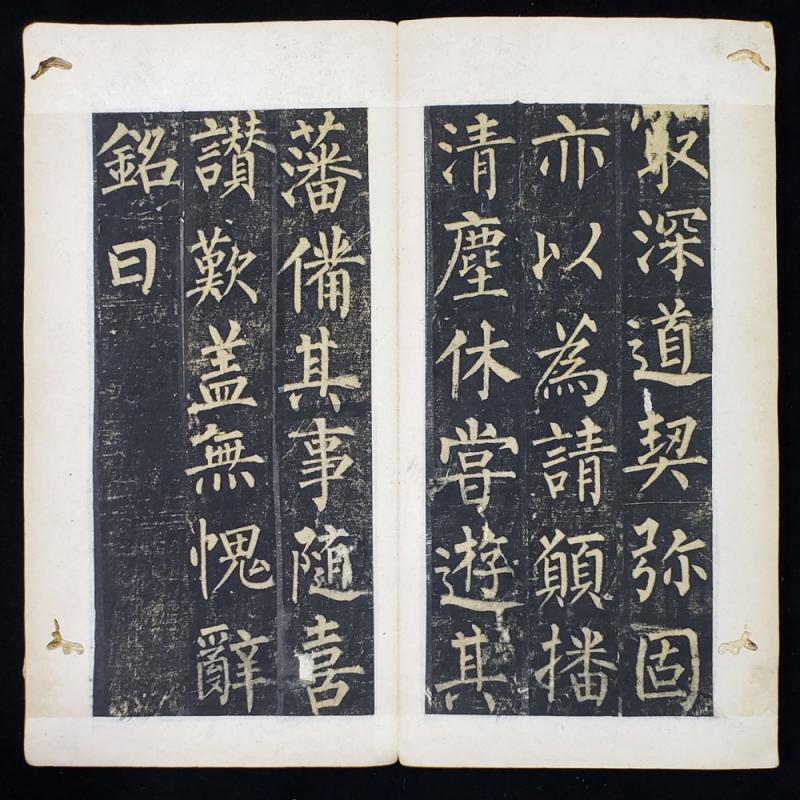 取深道契弥固
亦以為請願播
清塵休甞遊其
藩備其事隨喜
讃歎盖無愧辭
銘曰